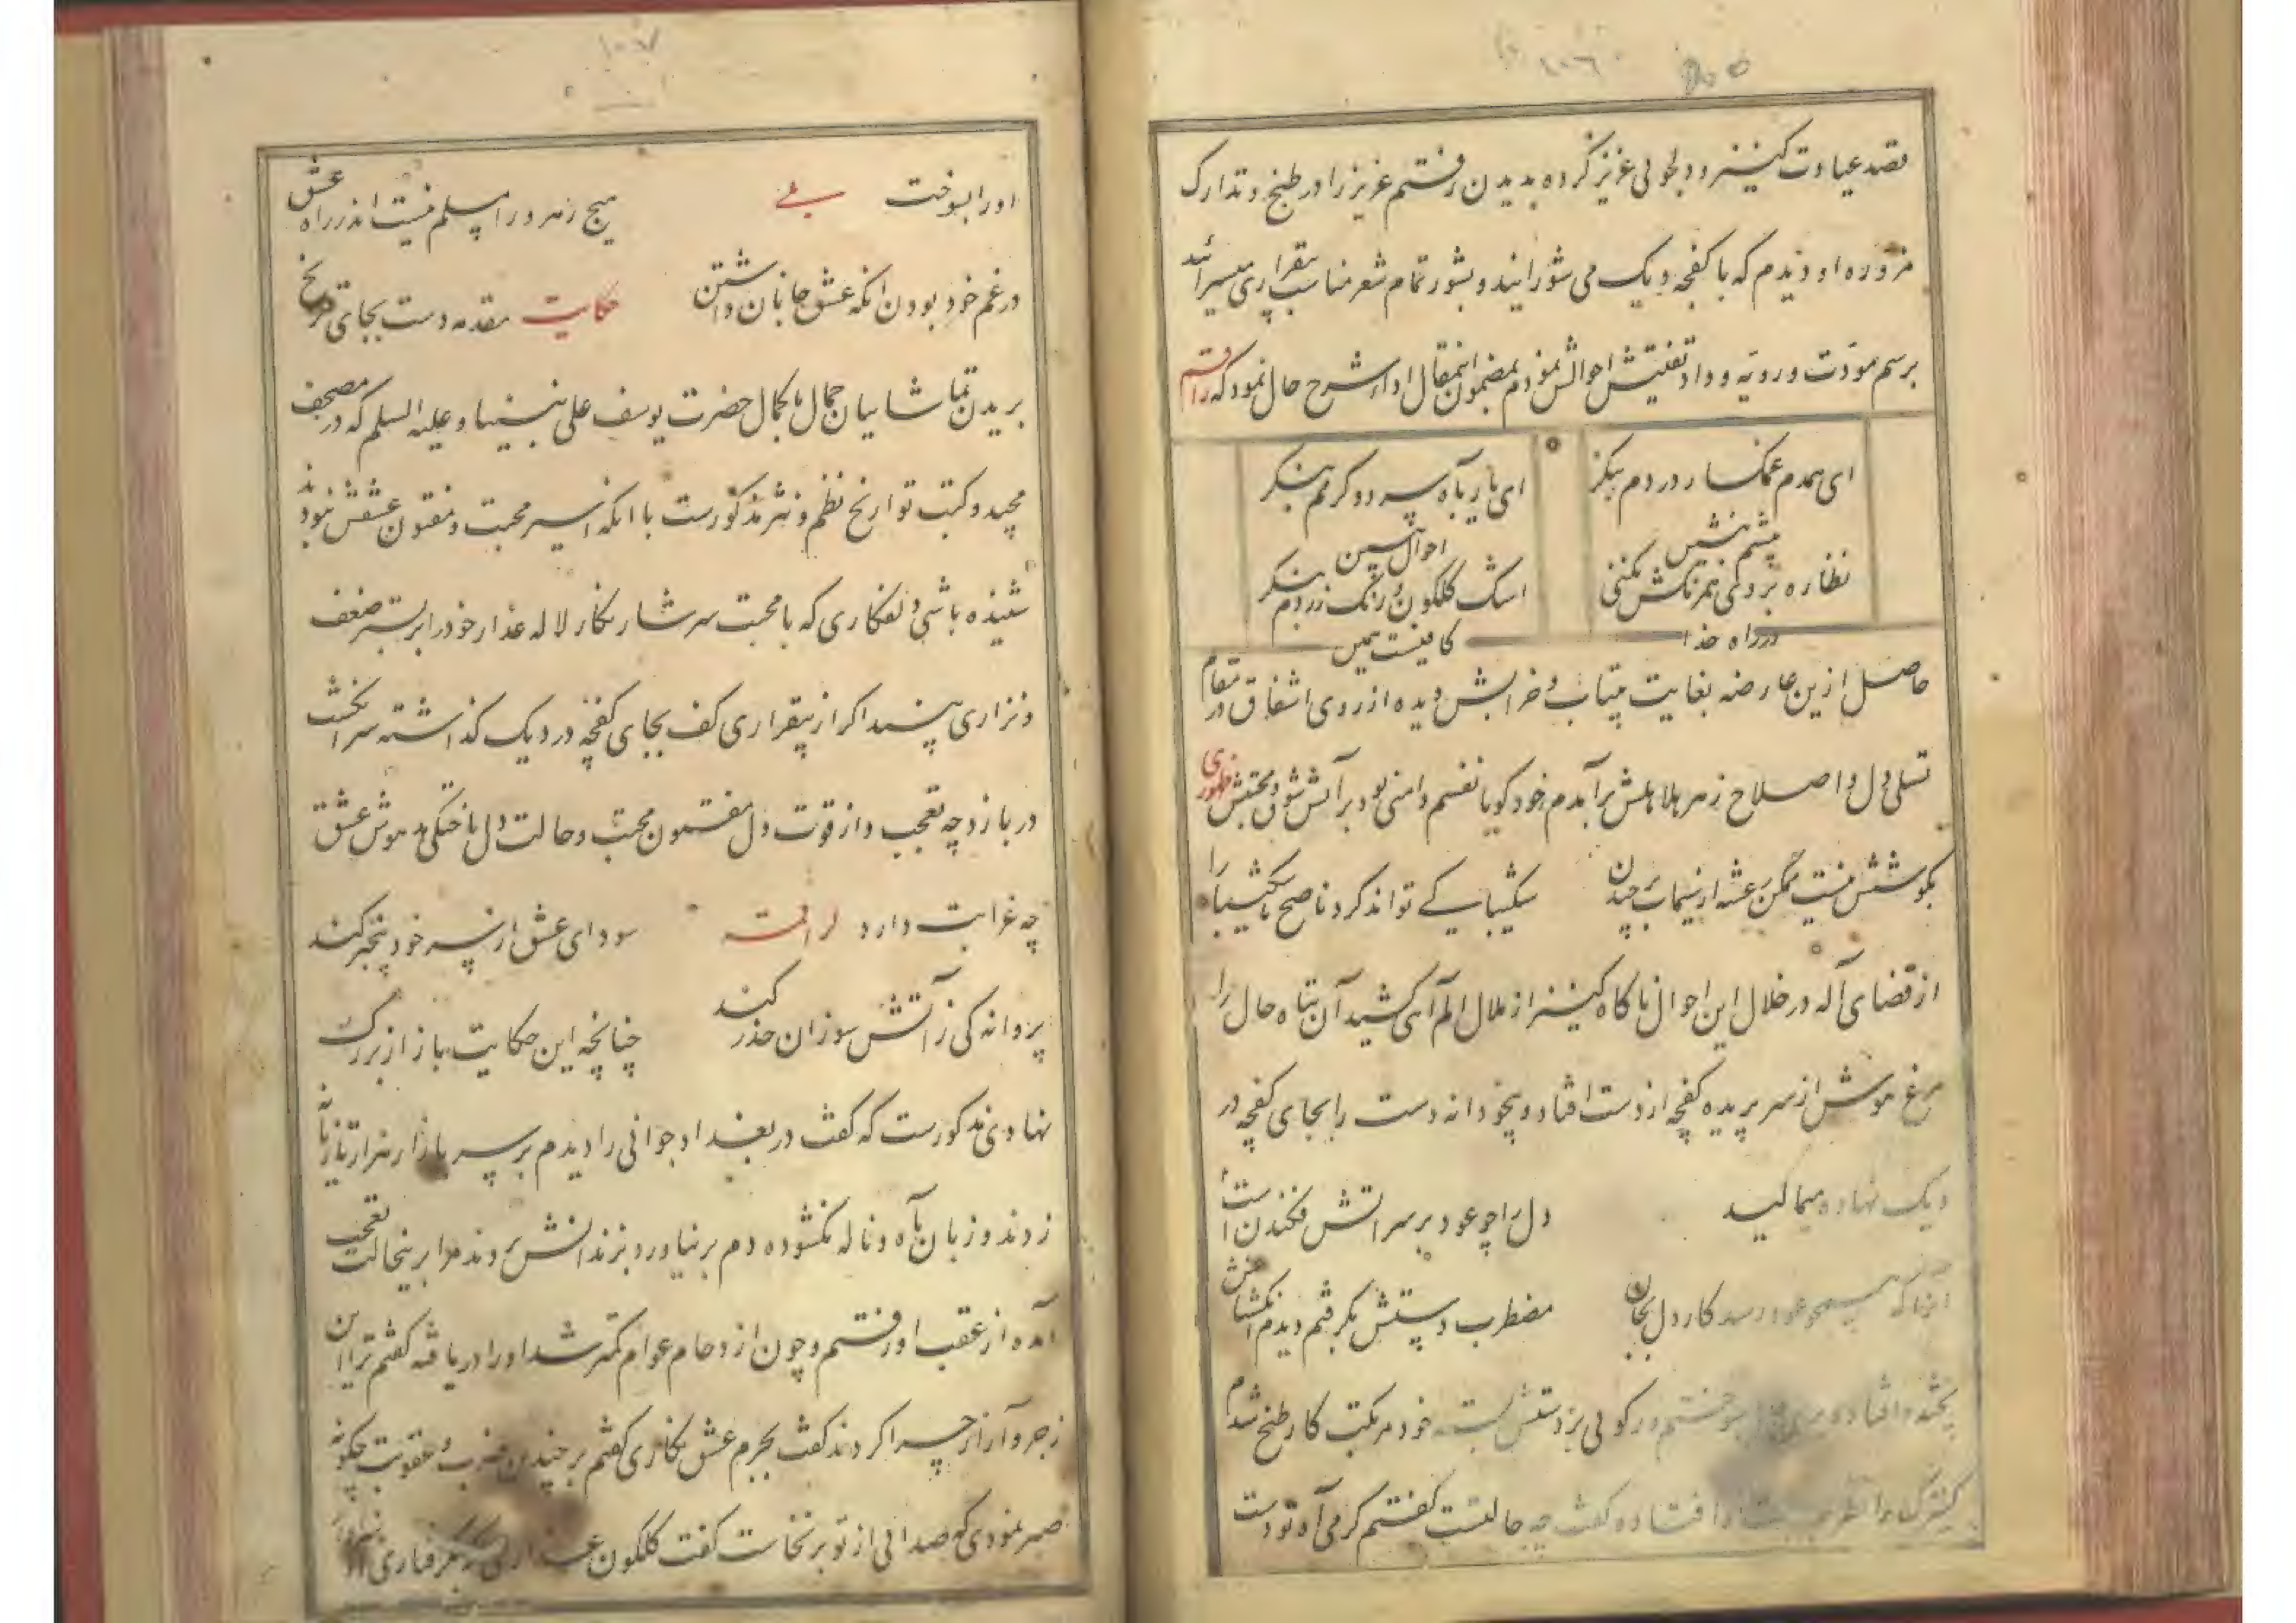 قصد عیادت کنیز و دلجوئی عزیز کرده بدیدن رفتم عزیز را در طبخ و تدارک
مزوره او دیدم که با کفچه دیک می شوراند و بشور تمام شعر مناسب بیقراری میسرائید
برسم مودت و رویه و داد تفتیش احوالش نمودم بمضمون اینمقال اداء شرح حال نمود که راقم
ای همدم غمکسار دردم بنکر
ای یار بآه سرد و کرمم بنکر
پیشم بنشین
احوال ببین
نظاره بزدکی نیم رنکش نکنی
اشک کلکون و رنک زردم بنکر
در راه خدا
کافیست همین
حاصل ازین عارضه بغایت بیتاب و خرابش دیده از روی اشفاق در مقام
تسلی دل و اصلاح زهر هلاهلش برآمدم خود کویا نفسم دامنی بود بر آتش شوق و محبتش ظهوری
بکوشش نیست ممکن رعشه از سیماب برچیدن
شکیبا کے تواند کرد ناصح ناشکیبا را
از قضای آله در خلال این احوال ناکاه کنیز از ملال الم آهی کشید آن تباه حال را
مرغ هوش از سر پریده کفچه از دست افتاد و بیخودانه دست را بجای کفچه در
دیک نهاده میمالید
دل را چو عود بر سر اتش فکندن است
عود رسد کار دل بجان
مضطرب دستش بکرفتم دیدم انکشتانش
پخته و افتاده رکوئی بر دستش بسته خود مرتکب کار طبخ شدم
کنیزک را نظر افتاده کفت چه حالتست کفتم کرمی آه تو دست
اورا بسوخت بلے
هیچ رهرو را مسلم نیست اندر راه عشق
در غم خود بودن انکه عشق جانان داشتن
حکایت مقدمه دست بجای ترنج
بریدن تماشائیان جمال باکمال حضرت یوسف علی نبینا و علیه السلم که در مصحف
مجید و کتب تواریخ نظم و نثر مذکورست با انکه اسیر محبت و مفتون عشقش نبودند
شنیده باشی دلفکاری که با محبت سرشار نکار لاله عذار خود را بر بستر ضعف
و نزاری بیند اکر از بیقراری کف بجای کفچه در دیک کذاشته سر انکشت
در بازد چه تعجب و از قوت دل مفتون محبت و حالت دل باختکی مدهوش عشق
چه غرابت دارد لراقمه
سودای عشق از سر خود بیخبر کند
پروانه کی ز آتش سوزان حذر کند
چنانچه این حکایت باز از بزرک
نهادی مذکورست که کفت در بغداد جوانی را دیدم بر سر بازار هزار تازیانه
زدند و زبان بآه و ناله نکشوده دم برنیاورد بزندانش بردند مرا برینحالت تعجب
آمده از عقب او رفتم و چون ازدحام عوام کمتر شد اورا دریافته کفتم ترا این
زجر و آزار چرا کردند کفت بجرم عشق نکاری کفتم بر چندین ضرب و عقوبت چکونه
صبر نمودی که صدائی از تو برنخاست کفت کلکون